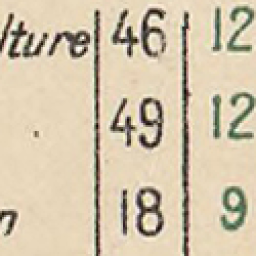 lture 46 12
49 12
n 18 9